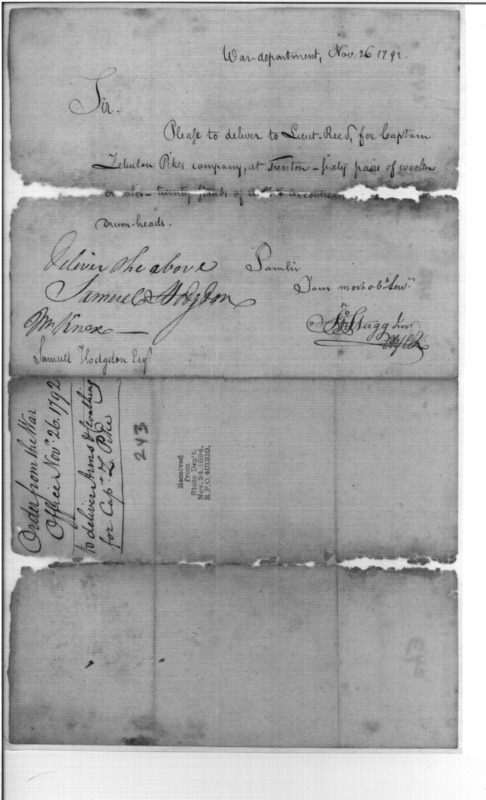 War-department, Nov. 26 1792.
Sir.
Please to deliver to Lieut. Reed, for Captain
Zebulon Pikes company, at Trenton - sixty pairs of woolen
twenty
drum-heads.
Deliver the above
Samuel Hodgdon
Mr Knox
I am Sir
Your most obt Servt
Jno Stagg Junr
Samuel Hodgdon Esqr.
Order from the War
Office Novr. 26. 1792
to deliver Arms & Cloathing
for Capt. Z Pike
243
Received
from
State Dep't,
Nov. 24, 1894,
R.P.O. 401310.